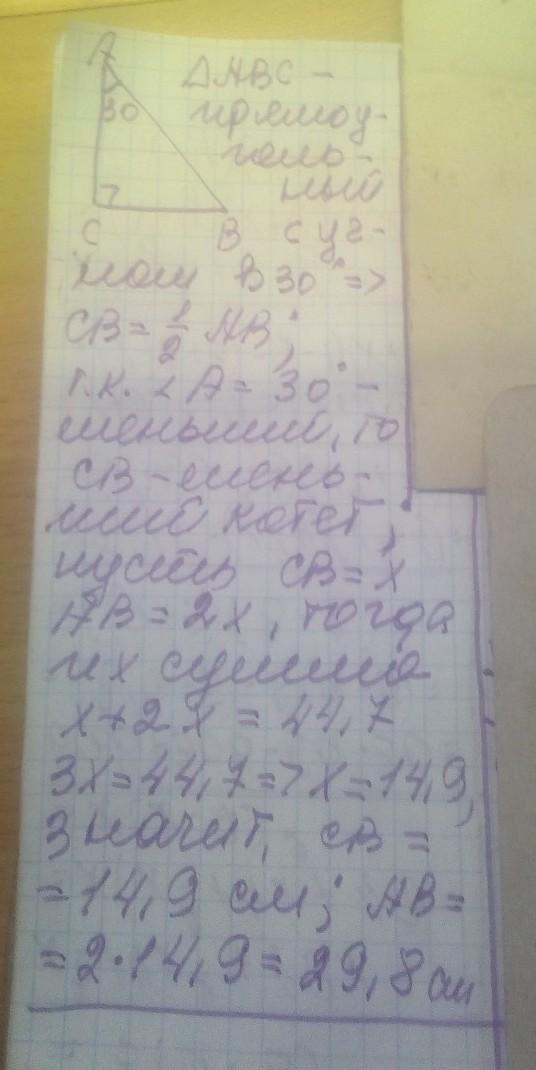 A
30
C
B
△ABC -
прямоу-
голь-
ный
с уг-
лом в 30° =>
CB = 1/2 AB;
т.к. ∠A = 30° -
меньший, то
CB - мень-
ший катет;
пусть CB = x
AB = 2x, тогда
их сумма
x + 2x = 44,7
3x = 44,7 => x = 14,9,
значит, CB =
= 14,9 см; AB =
= 2·14,9 = 29,8 см